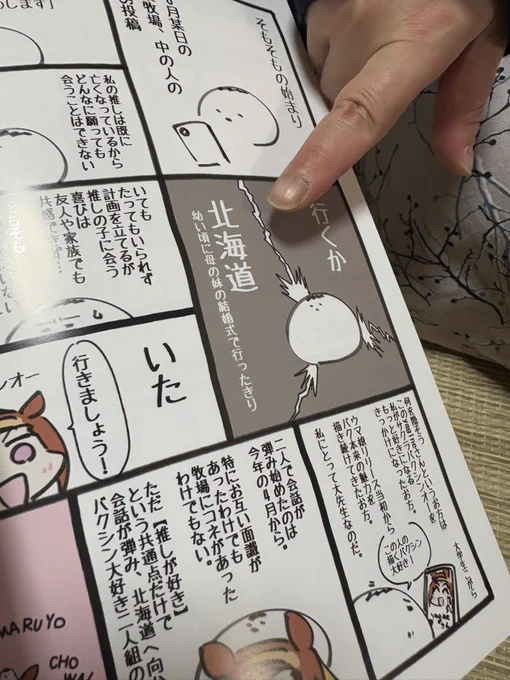 そもそもの始まり
月某日の
牧場、中の人の
投稿
します」
私の推しは既に
亡くなっているから
どんなに願っても
会うことはできない
行くか
北海道
幼い頃に母の妹の結婚式で行ったきり
いても
たってもいられず
計画を立てるが
推しの子に会う
喜びは
友人や家族でも
そもそも
いた
行きましょう!
シオー
ウマ娘リリース当初から
バク本来の魅力を
描き続けてきたお方。
私にとって大先生なのだ。
この人の
描くバクシン
大好き!
二人で会話が
弾み始めたのは
今年の4月から。
特にお互い面識が
あったわけでも
牧場にコネがあった
わけでもない。
ただ【推しが好き】
という共通点だけで
会話が弾み、北海道へ向か
バクシン大好き二人組の
MARUYO
CHO